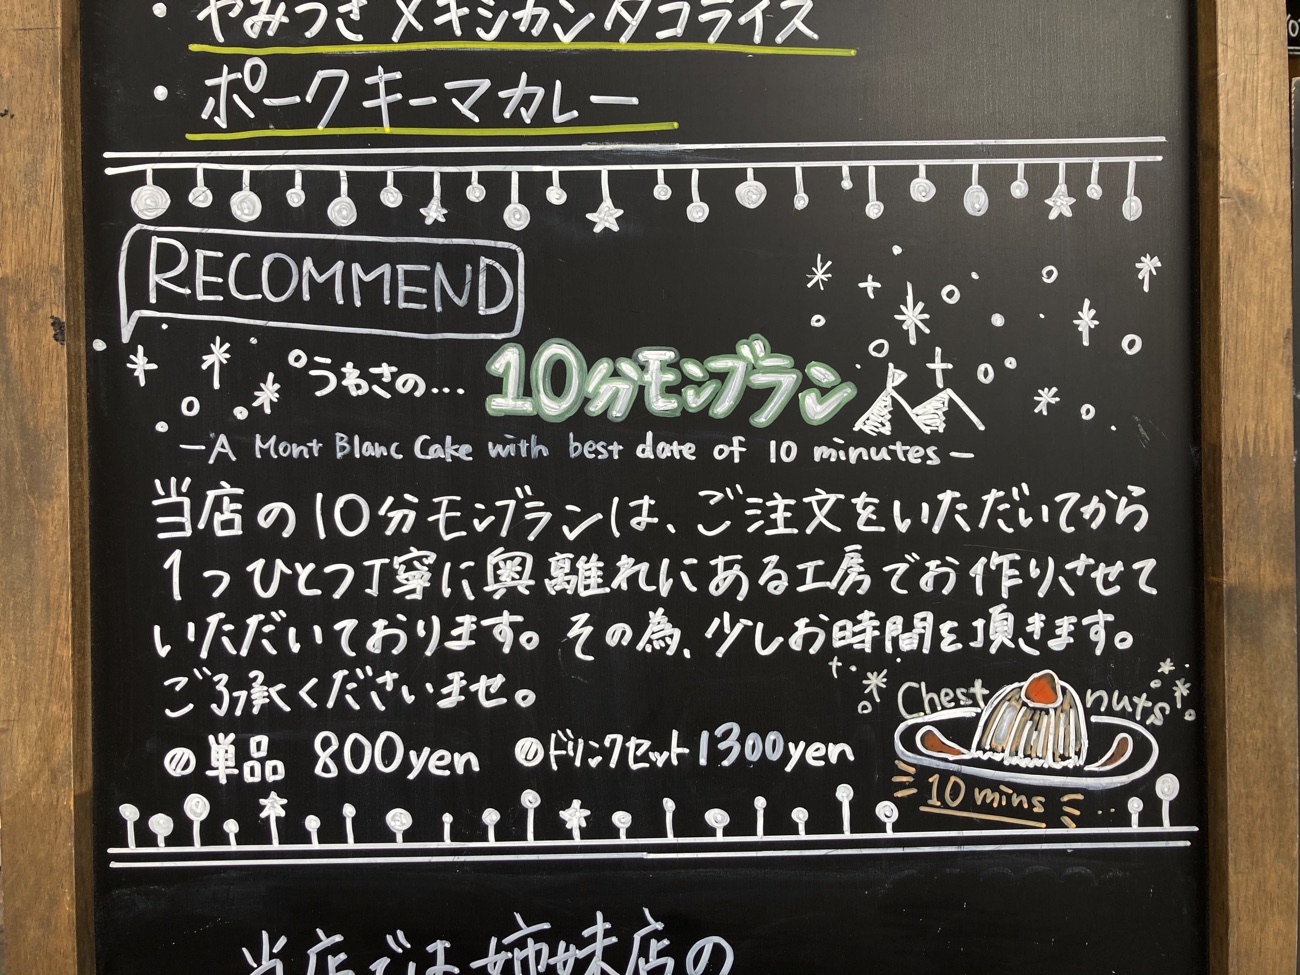 ・やみつきメキシカンタコライス
・ポークキーマカレー
RECOMMEND
うわさの...10分モンブラン
-A Mont Blanc Cake with best date of 10 minutes-
当店の10分モンブランは、ご注文をいただいてから
1つひとつ丁寧に奥離れにある工房でお作りさせて
いただいております。その為、少しお時間を頂きます。
ご了承くださいませ。
Chest nuts
単品 800yen ドリンクセット1300yen
10 mins
当店では姉妹店の